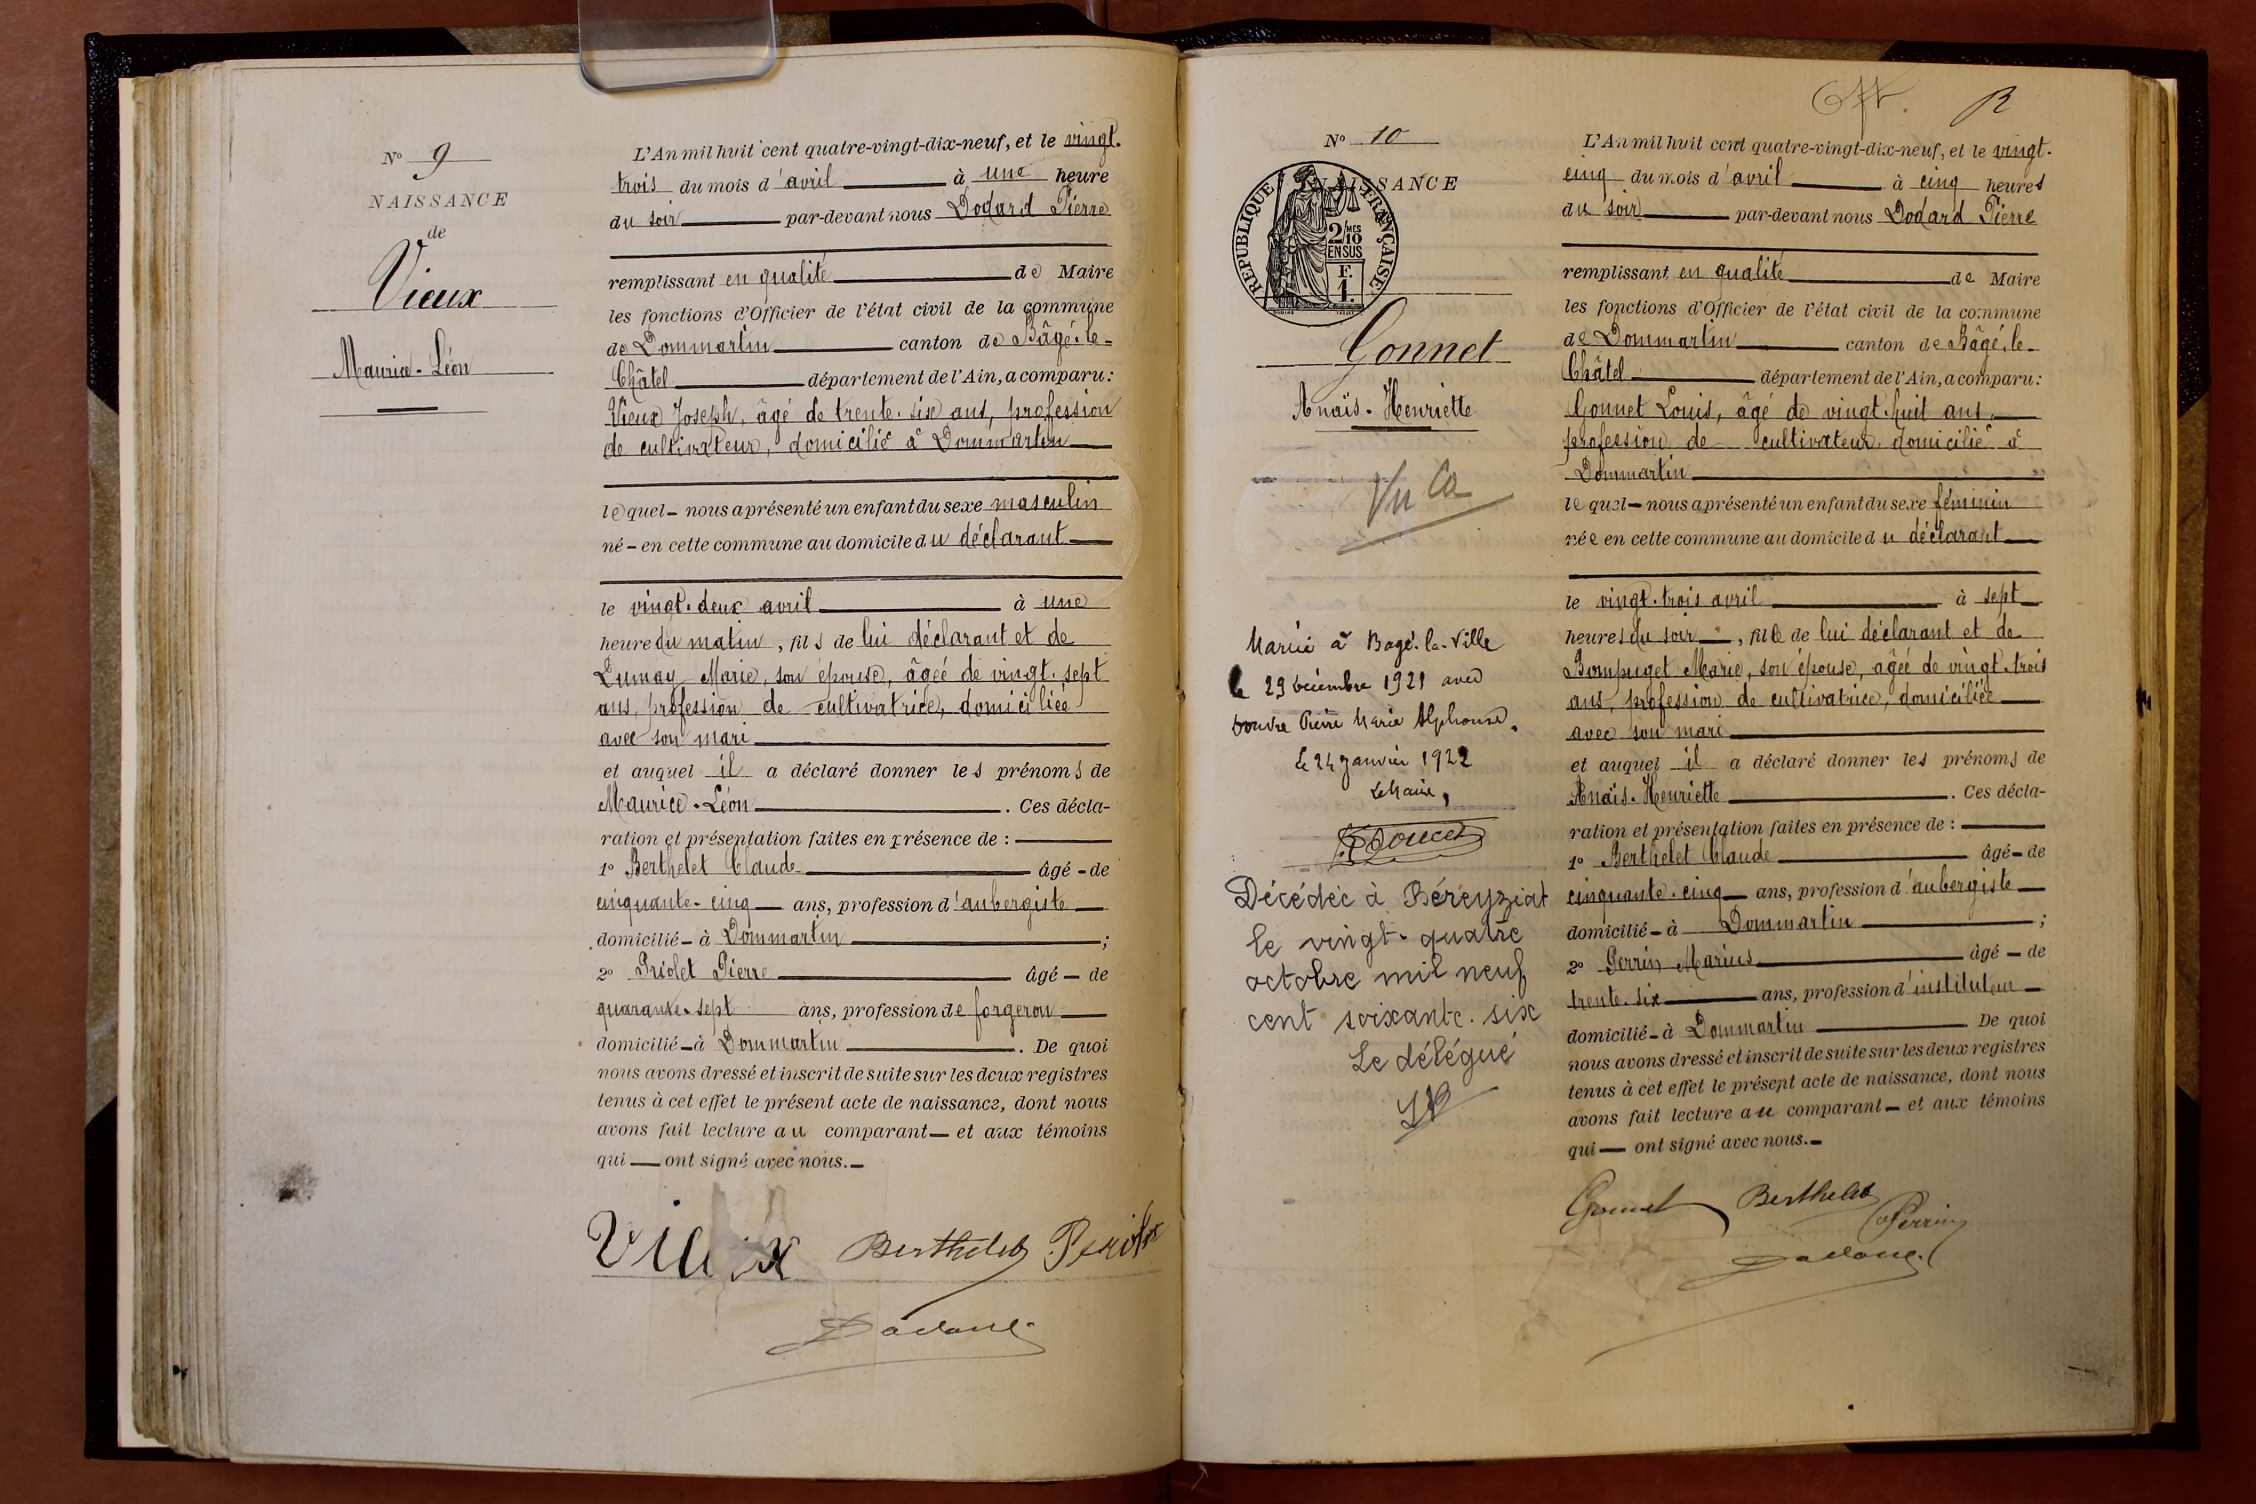 N° 9
NAISSANCE
de
Vieux
Maurice-Léon
L'An mil huit cent quatre-vingt-dix-neuf, et le vingt-
trois du mois d'avril à une heure
du soir par-devant nous Dodard Pierre
remplissant en qualité de Maire
les fonctions d'Officier de l'état civil de la commune
de Dommartin canton de Bâgé-le-
Châtel département de l'Ain, a comparu:
Vieux Joseph, âgé de trente-six ans, profession
de cultivateur, domicilié à Dommartin
lequel nous a présenté un enfant du sexe masculin
né en cette commune au domicile du déclarant
le vingt-deux avril à une
heure du matin, fils de lui déclarant et de
Marie, son épouse, âgée de vingt-sept
ans, profession de cultivatrice, domiciliée
avec son mari
et auquel il a déclaré donner les prénoms de
Maurice-Léon. Ces décla-
ration et présentation faites en présence de :
1° Berthelet Claude âgé de
cinquante-cinq ans, profession d'aubergiste
domicilié à Dommartin ;
2° Priolet Pierre âgé de
quarante-sept ans, profession de forgeron
domicilié à Dommartin. De quoi
nous avons dressé et inscrit de suite sur les deux registres
tenus à cet effet le présent acte de naissance, dont nous
avons fait lecture au comparant et aux témoins
qui ont signé avec nous.
Vieux Berthelet
N° 10
NAISSANCE
REPUBLIQUE FRANÇAISE
2/10 MES
EN SUS
F.
1.
Gonnet
Anaïs-Henriette
Vu
Mariée à Bagé-la-Ville
le 29 décembre 1921 avec
Pierre Marie Alphonse.
le 24 janvier 1922
Le Maire,
Doucet
Décédée à Béréyziat
le vingt-quatre
octobre mil neuf
cent soixante-six
Le délégué
R
L'An mil huit cent quatre-vingt-dix-neuf, et le vingt-
cinq du mois d'avril à cinq heures
du soir par-devant nous Dodard Pierre
remplissant en qualité de Maire
les fonctions d'Officier de l'état civil de la commune
de Dommartin canton de Bâgé-le-
Châtel département de l'Ain, a comparu:
Gonnet Louis, âgé de vingt-huit ans,
profession de cultivateur, domicilié à
Dommartin
lequel nous a présenté un enfant du sexe féminin
née en cette commune au domicile du déclarant
le vingt-trois avril à sept
heures du soir, fille de lui déclarant et de
Bompuget Marie, son épouse, âgée de vingt-trois
ans, profession de cultivatrice, domiciliée
avec son mari
et auquel il a déclaré donner les prénoms de
Anaïs-Henriette. Ces décla-
ration et présentation faites en présence de :
1° Berthelet Claude âgé de
cinquante-cinq ans, profession d'aubergiste
domicilié à Dommartin ;
2° Perrin Marius âgé de
trente-six ans, profession d'instituteur
domicilié à Dommartin De quoi
nous avons dressé et inscrit de suite sur les deux registres
tenus à cet effet le présent acte de naissance, dont nous
avons fait lecture au comparant et aux témoins
qui ont signé avec nous.
Gonnet Berthelet
Perrin